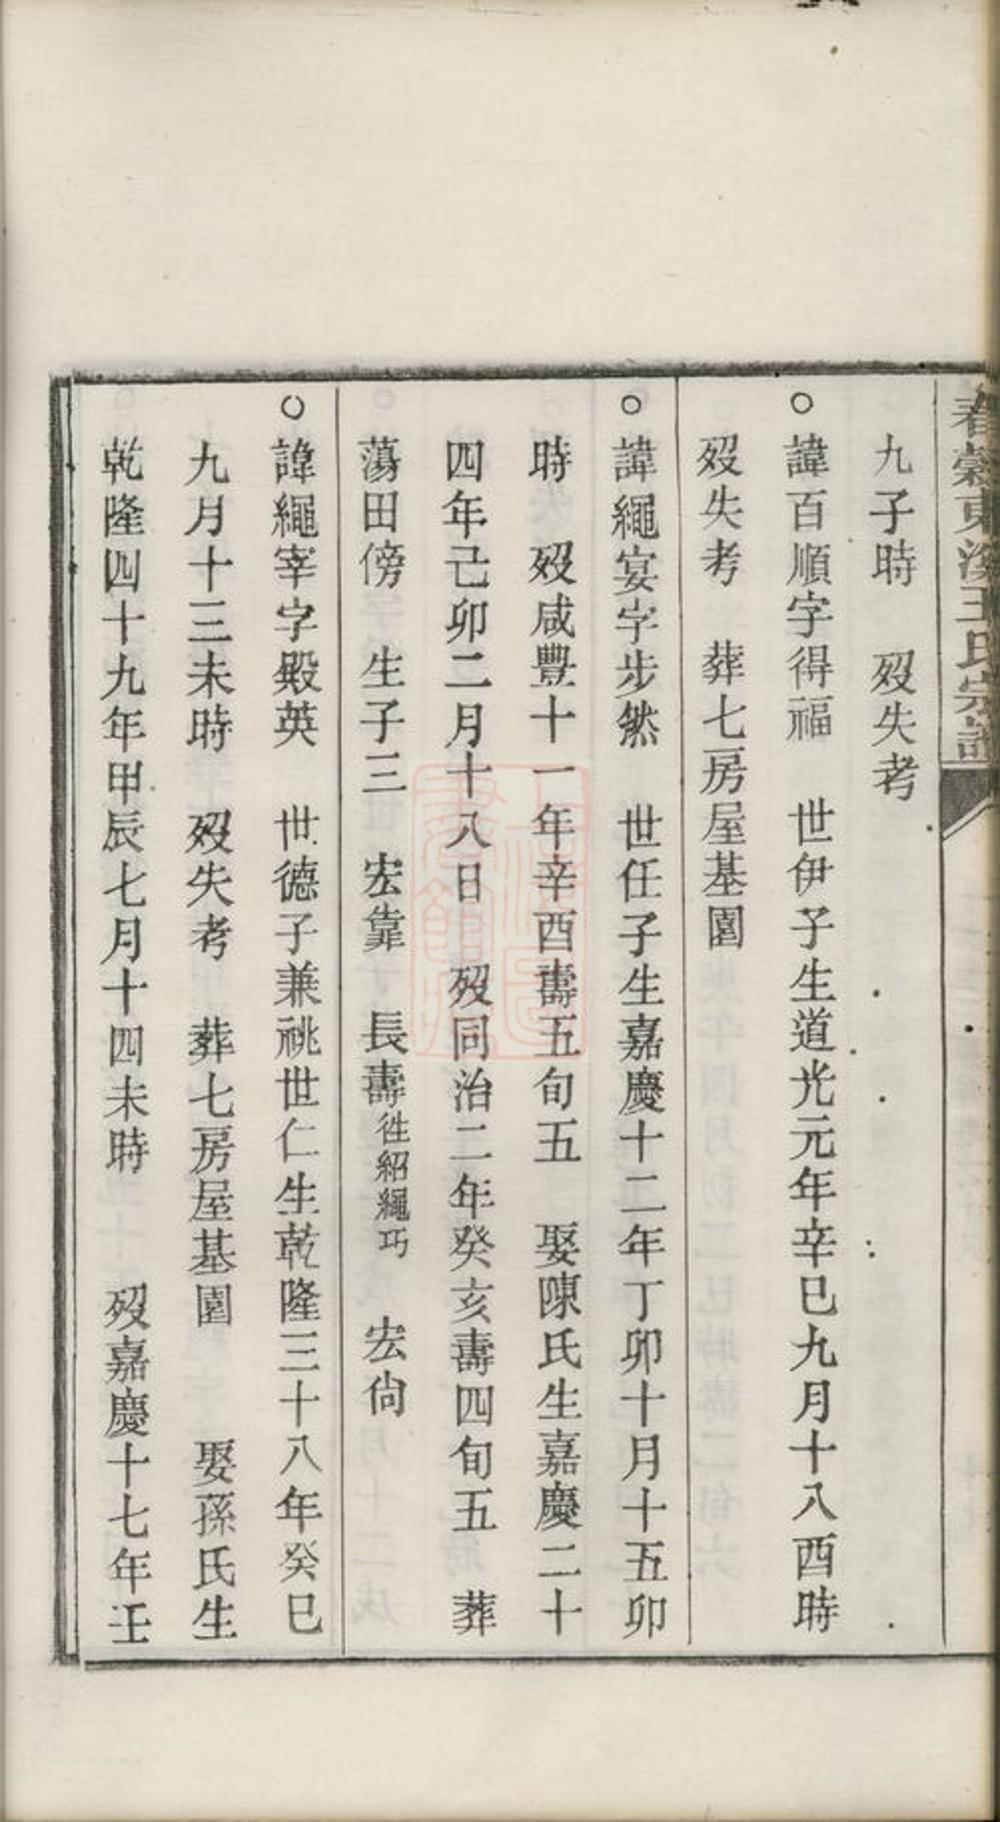 春穀東溪王氏宗譜
九子時　歿失考
○諱百順字得福　世伊子生道光元年辛巳九月十八酉時
歿失考　葬七房屋基園
○諱繩宴字步然　世任子生嘉慶十二年丁卯十月十五卯
時　歿咸豐十一年辛酉壽五旬五　娶陳氏生嘉慶二十
四年己卯二月十八日　歿同治二年癸亥壽四旬五　葬
蕩田傍　生子三　宏靠　長壽徃紹繩巧　宏尙
○諱繩宰字殿英　世德子兼祧世仁生乾隆三十八年癸巳
九月十三未時　歿失考　葬七房屋基園　娶孫氏生
乾隆四十九年甲辰七月十四未時　歿嘉慶十七年壬